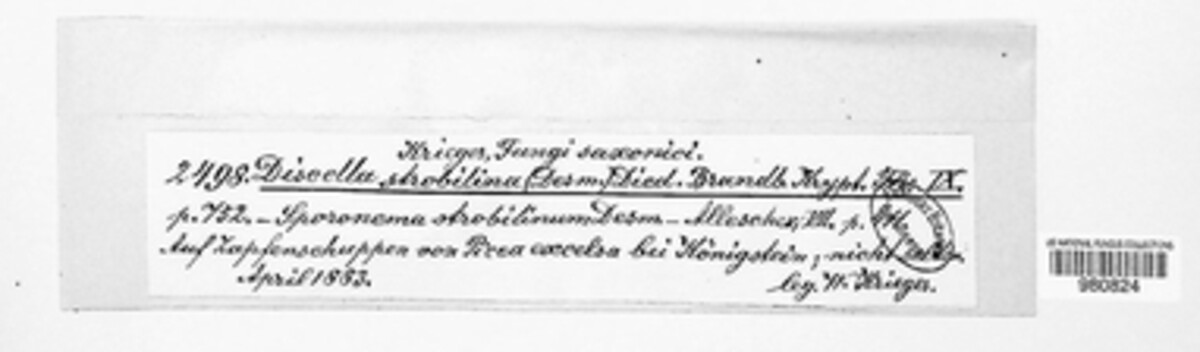 Krieger, Fungi saxonici.
2498. Discella strobilina (Desm.) Died. Brandb. Krypt. IX.
p. 752. - Sporonema strobilinum Desm. - Allescher, VII. p.
Auf Zapfenschuppen von Picea excelsa bei Königstein; nicht
April 1883. leg. W. Krieger.
US NATIONAL FUNGUS COLLECTIONS
980824